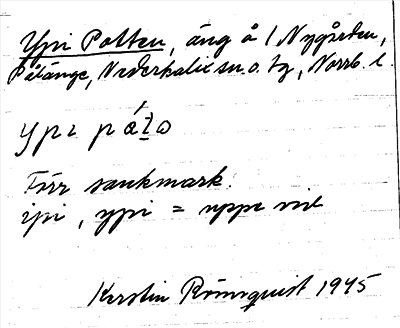 Ypi Potten, äng å 1 Nygården,
Pålänge, Nederkalix sn o. tg, Norrb. l.
ypi påto
Förr sankmark.
ipi, ypi = uppe vid
Kerstin Rönnquist 1945